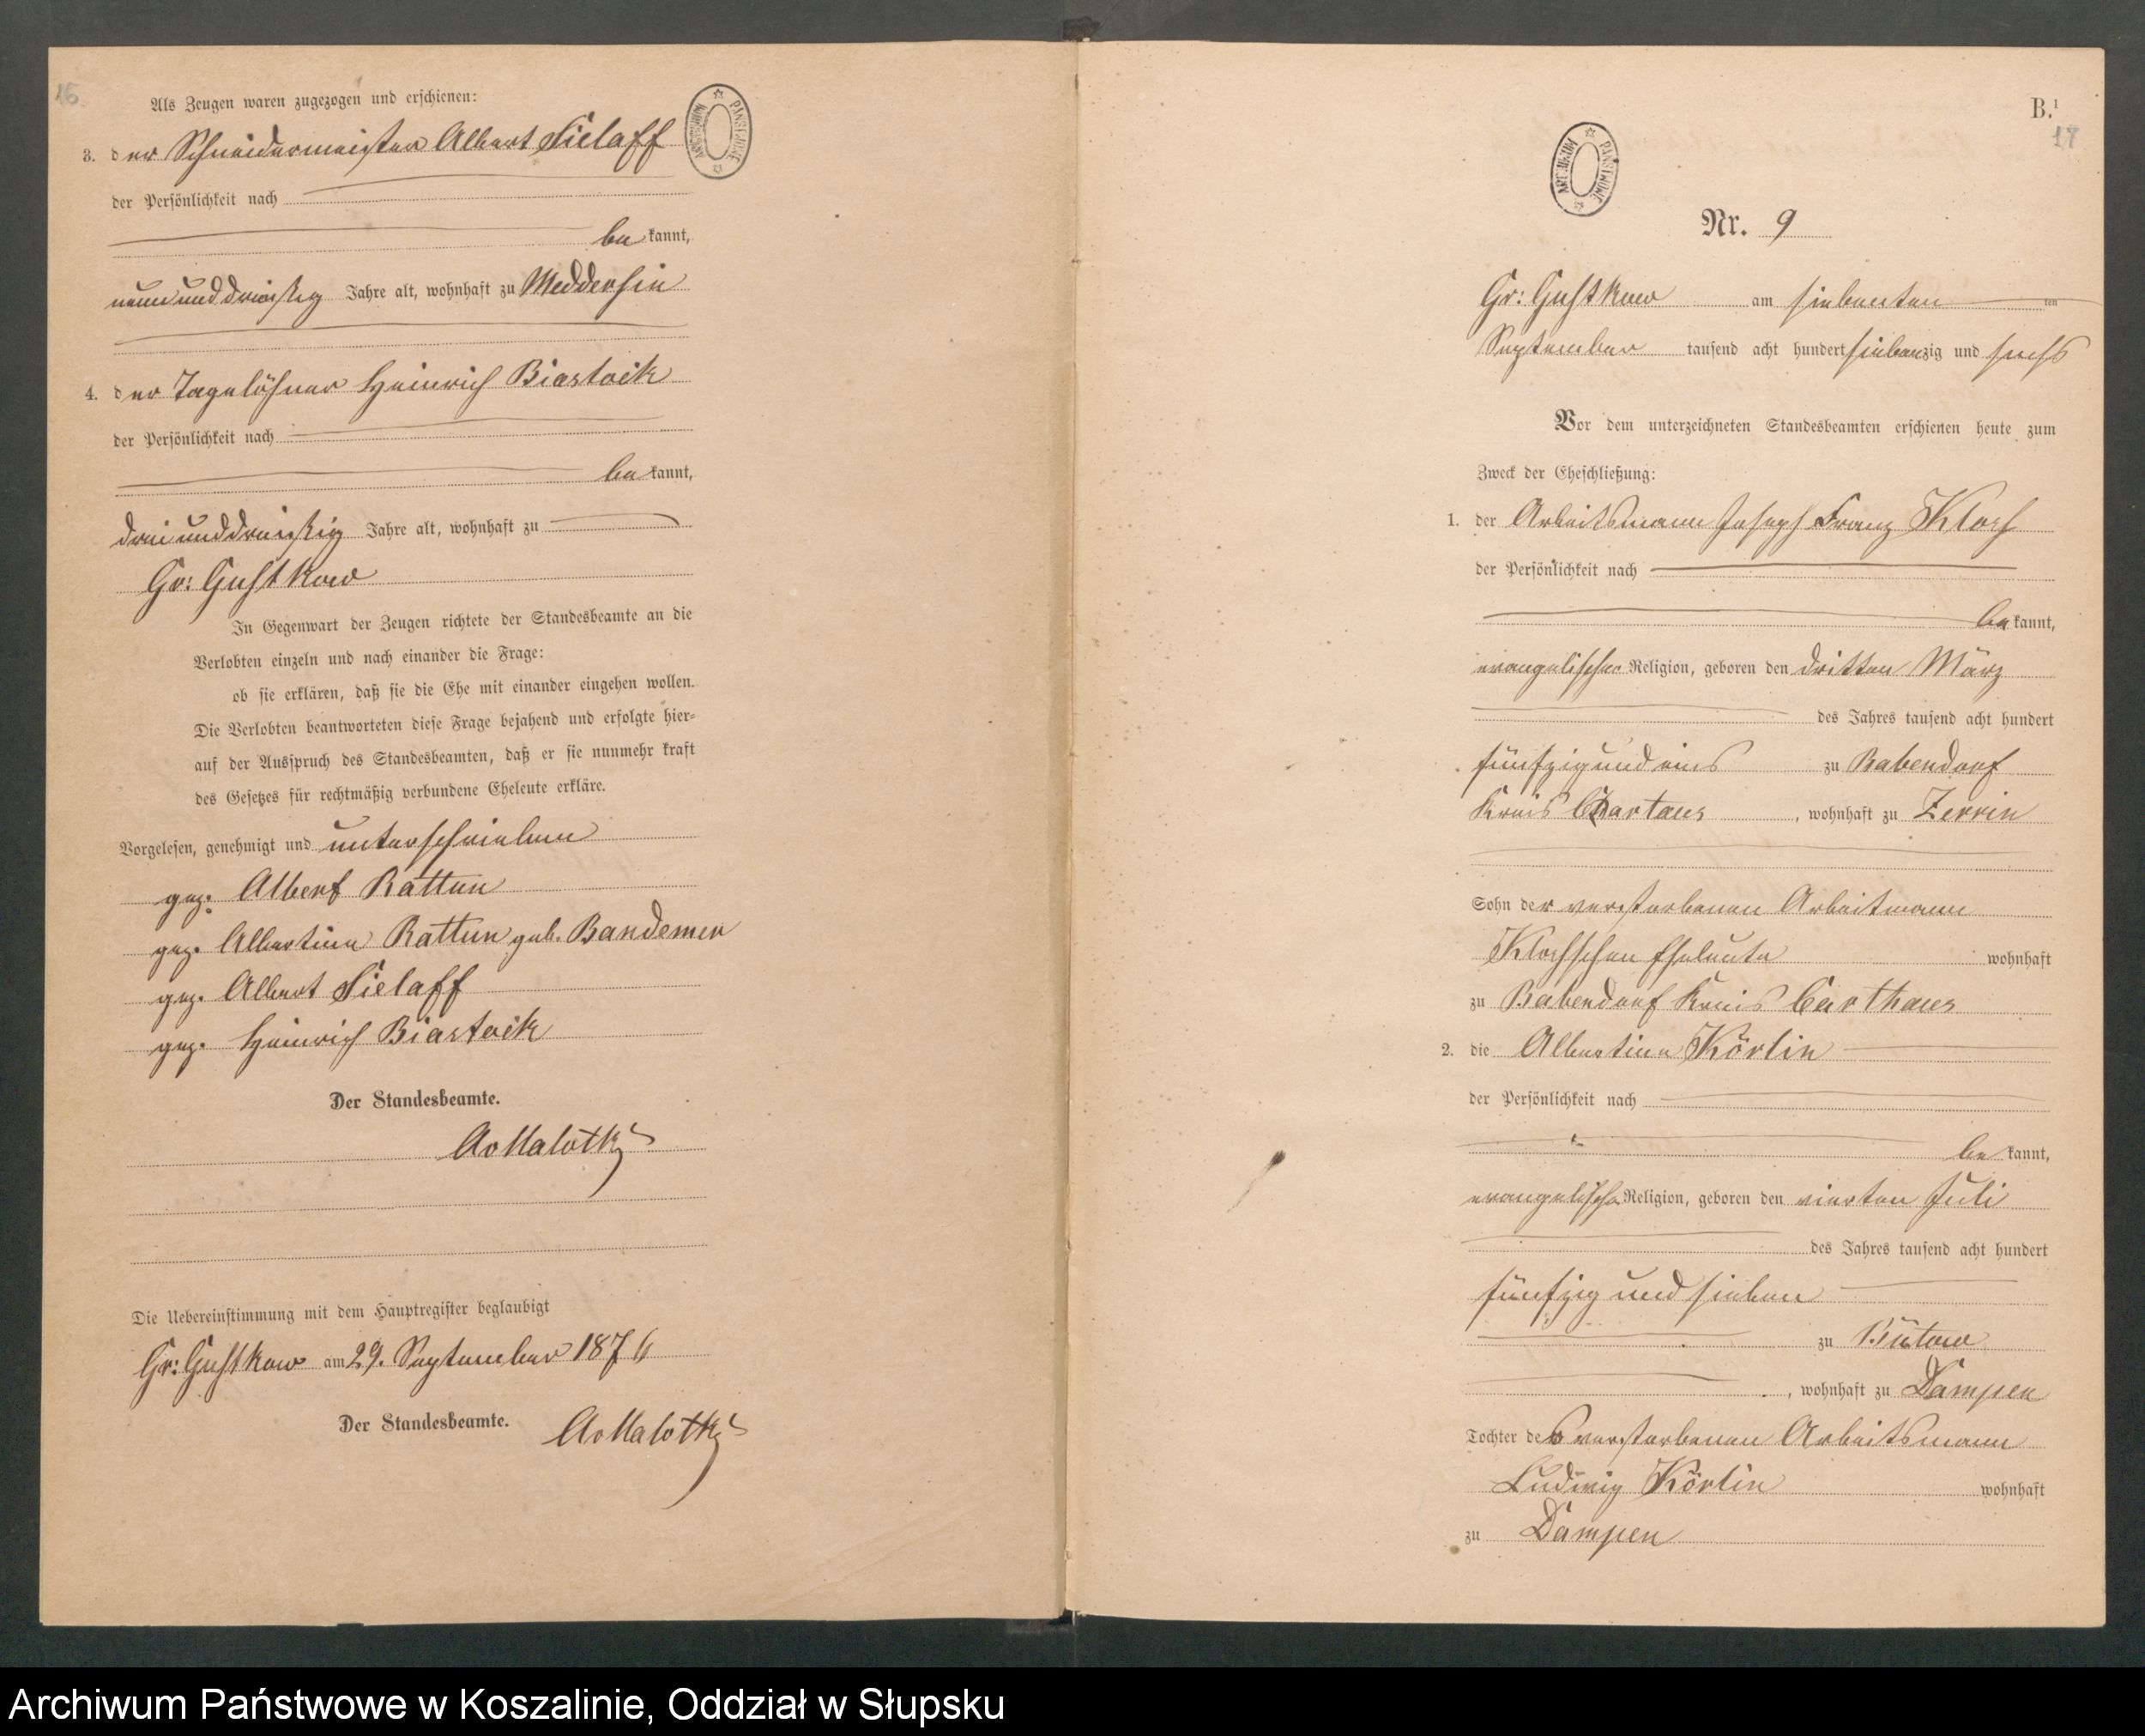 16
Als Zeugen waren zugezogen und erschienen:
3. der Schneidermeister Albert Sielaff
der Persönlichkeit nach
bekannt,
neununddreißig Jahre alt, wohnhaft zu Meddersin
4. der Tagelöhner Heinrich Biastock
der Persönlichkeit nach
bekannt,
dreiunddreißig Jahre alt, wohnhaft zu
Gr: Gustkow
In Gegenwart der Zeugen richtete der Standesbeamte an die
Verlobten einzeln und nach einander die Frage:
ob sie erklären, daß sie die Ehe mit einander eingehen wollen.
Die Verlobten beantworteten diese Frage bejahend und erfolgte hier-
auf der Ausspruch des Standesbeamten, daß er sie nunmehr kraft
des Gesetzes für rechtmäßig verbundene Eheleute erkläre.
Vorgelesen, genehmigt und unterschrieben
gez. Albert Rattun
gez. Albertine Rattun geb. Bandemer
gez. Albert Sielaff
gez. Heinrich Biastock
Der Standesbeamte.
AvMalotky
Die Uebereinstimmung mit dem Hauptregister beglaubigt
Gr: Gustkow am 29. September 1876
Der Standesbeamte. AvMalotky
ARCHIWUM PAŃSTWOWE
B.¹
17
ARCHIWUM PAŃSTWOWE
Nr. 9
Gr: Gustkow am siebenten ten
September tausend acht hundert siebenzig und sechs
Vor dem unterzeichneten Standesbeamten erschienen heute zum
Zweck der Eheschließung:
1. der Arbeitsmann Joseph Franz Kloss
der Persönlichkeit nach
bekannt,
evangelischer Religion, geboren den dritten März
des Jahres tausend acht hundert
fünfzig und eins zu Babendorf
Kreis Cartaus, wohnhaft zu Zerrin
Sohn der verstorbenen Arbeitmann
Klossschen Eheleute wohnhaft
zu Babendorf Kreis Carthaus
2. die Albertine Körlin
der Persönlichkeit nach
bekannt,
evangelischer Religion, geboren den vierten Juli
des Jahres tausend acht hundert
fünfzig und sieben
zu Bütow
, wohnhaft zu Dampen
Tochter des verstorbenen Arbeitsmann
Ludwig Körlin wohnhaft
zu Dampen
Archiwum Państwowe w Koszalinie, Oddział w Słupsku